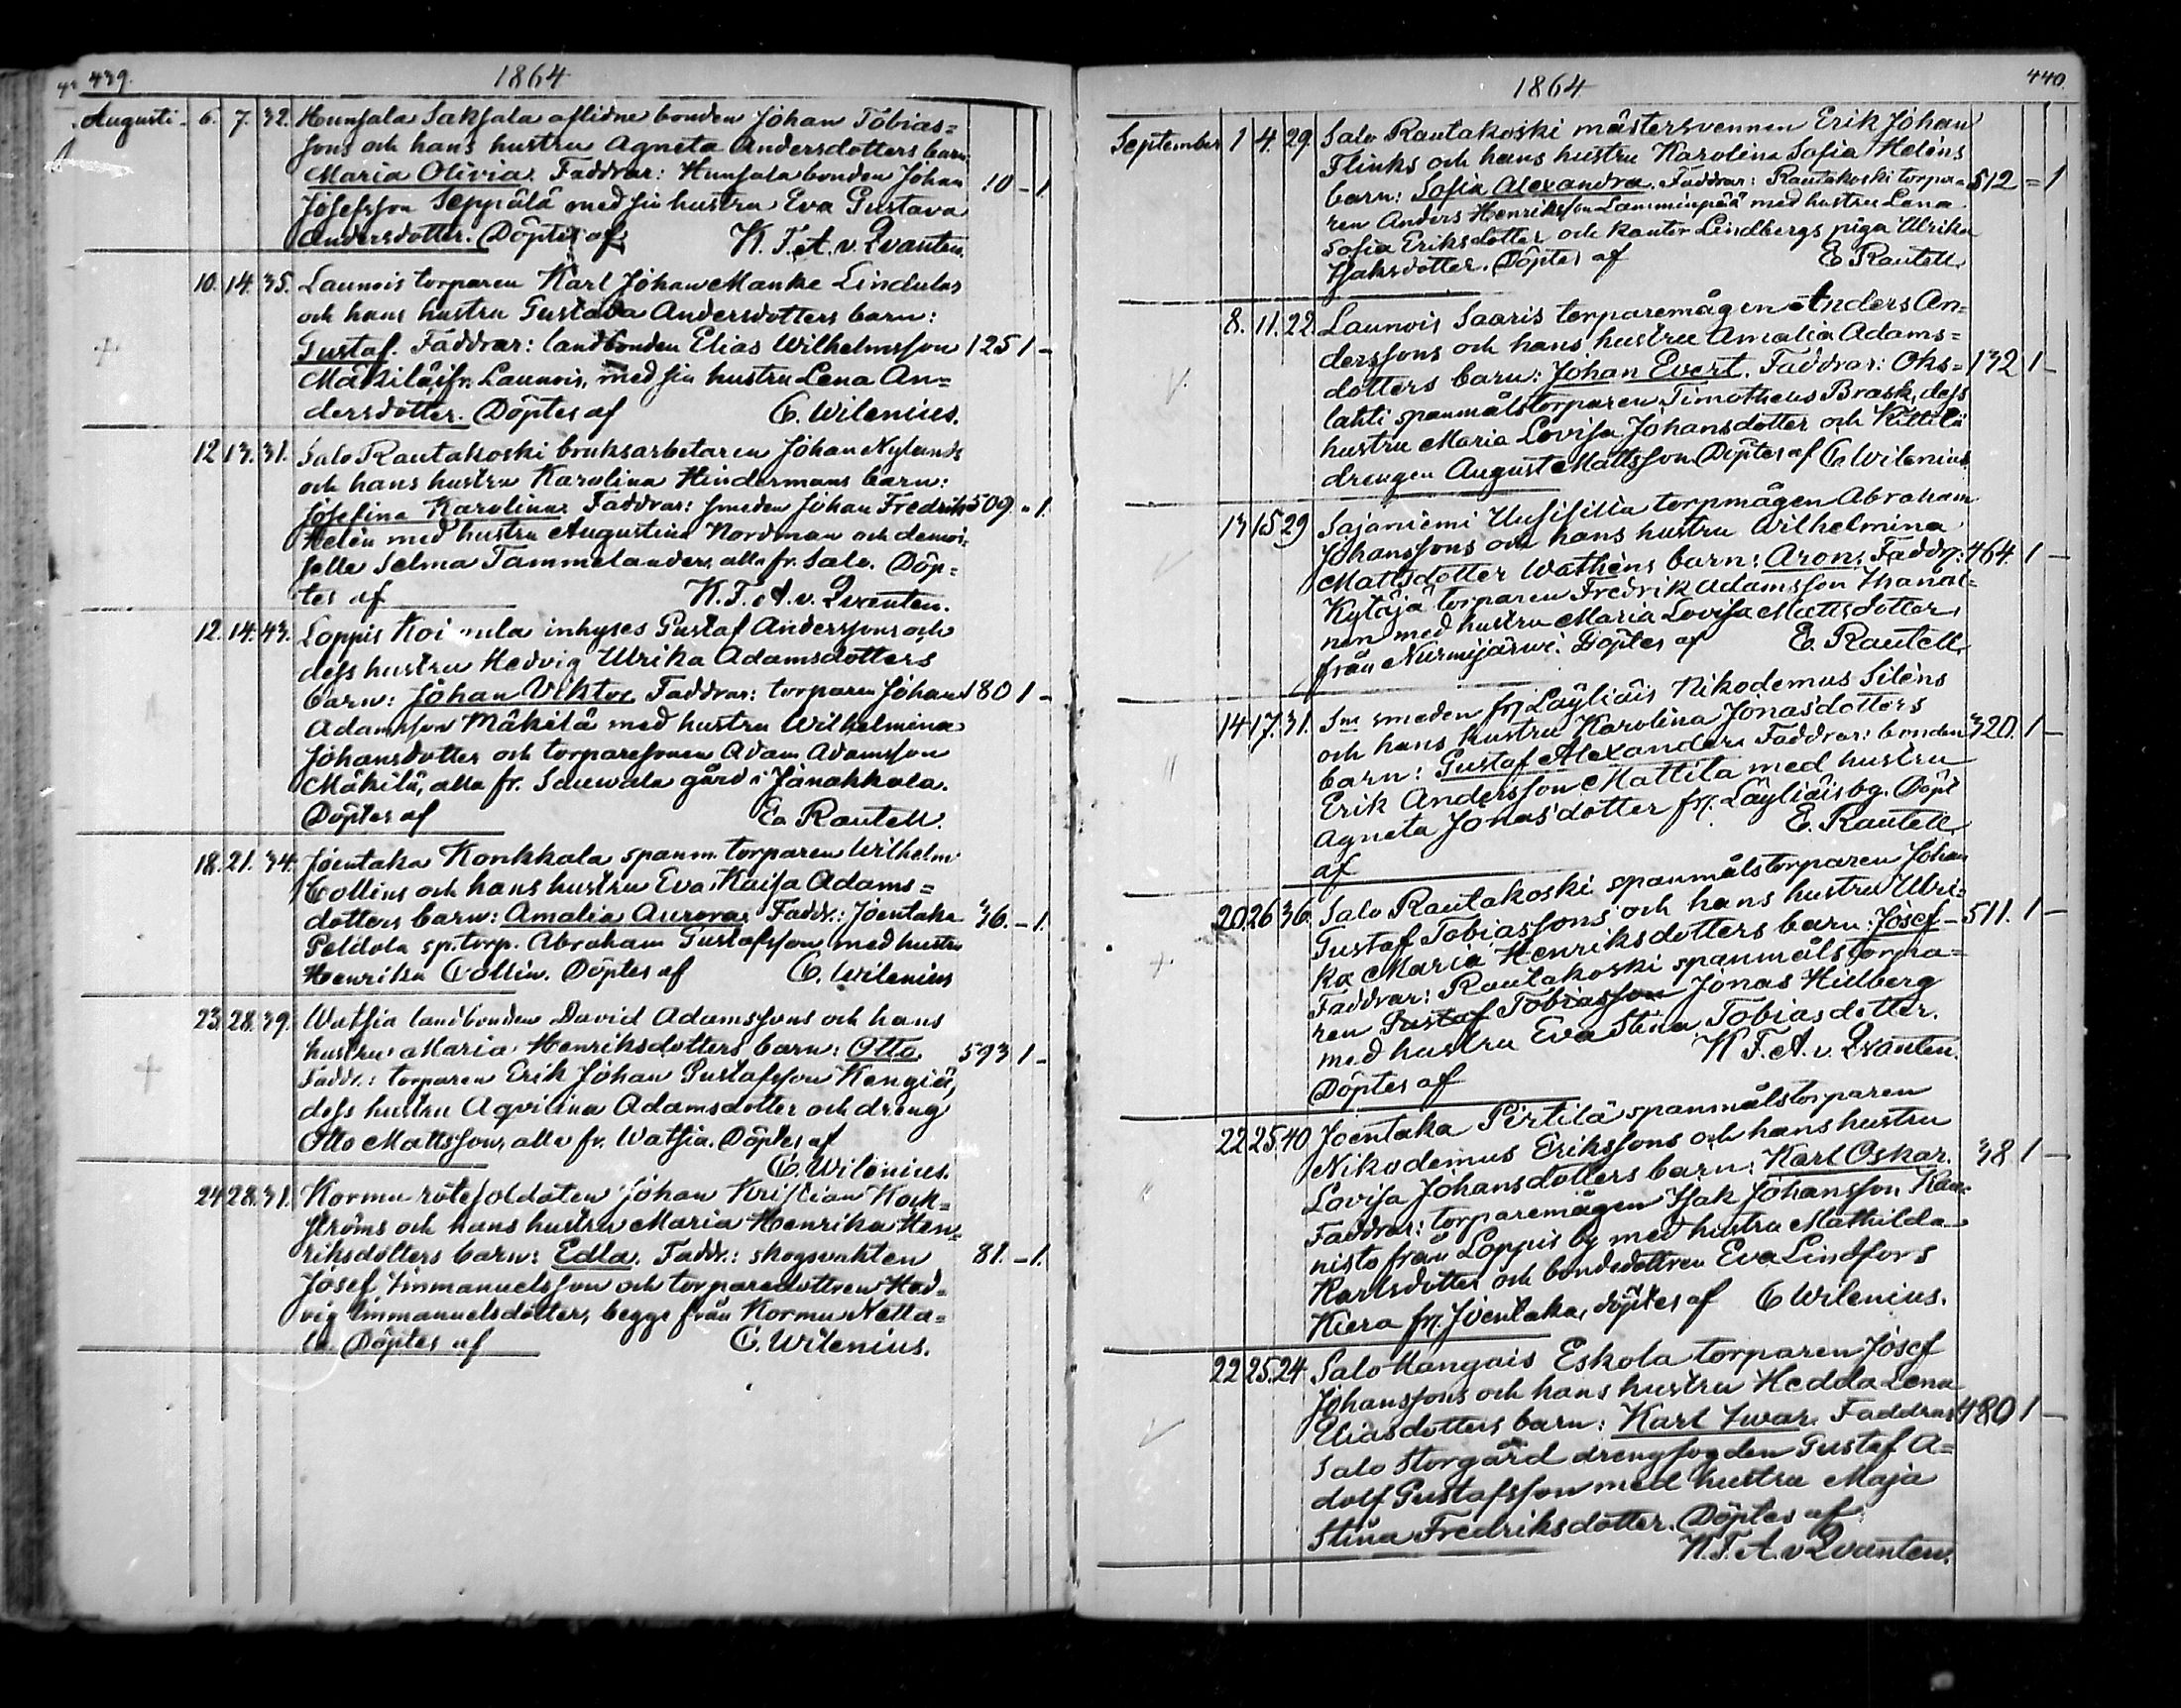 439.
1864
Augusti. 6. 7. 32. Hunsala Saksala aflidne bonden Johan Tobias=
sons och hans hustru Agneta Andersdotters barn
Maria Olivia. Faddrar: Hunsala bonden Johan 10 - 1.
Josefsson Seppälä med sin hustru Eva Gustava
Andersdotter. Döptes af K. F. A. v. Qvanten.
10. 14. 35. Launois torparen Karl Johan Manke Lindulas
och hans hustru Gustava Andersdotters barn:
Gustaf. Faddrar: landbonden Elias Wilhelmsson 125 1 -
Mäkilä ifr. Launois, med sin hustru Lena An=
dersdotter. Döptes af C. Wilenius.
12 13. 31. Salo Rautakoski bruksarbetaren Johan Nylunds
och hans hustru Karolina Hindermans barn:
Josefina Karolina. Faddrar: smeden Johan Fredrik 509. " 1.
Helén med hustru Augustina Nordman och demoi=
selle Selma Tammelander, alla fr. Salo. Döp=
tes af K. F. A. v. Qvanten.
12. 14. 43. Loppis inhyses Gustaf Anderssons och
dess hustru Hedvig Ulrika Adamsdotters
barn: Johan Viktor Faddrar: torparen Johan 180 1 -
Adamsson Mäkilä med hustru Wilhelmina
Johansdotter och torparesonen Adam Adamsson
Mäkilä, alla fr. Sauwala gård i Janakkala.
Döptes af E. Rautell.
18. 21. 34. Joentaka Konkkala spanm. torparen Wilhelm
Collins och hans hustru Eva Kaisa Adams=
dotters barn: Amalia Aurora. Faddr.: Joentaka 36. - 1.
Peldola sp. torp. Abraham Gustafsson med hustru
Henrika Collin. Döptes af C. Wilenius
23. 28. 39. Watsia landbonden David Adamssons och hans
hustru Maria Henriksdotters barn: Otto. 593 1 -
Faddr.: torparen Erik Johan Gustafsson Kengiä,
dess hustru Aqvilina Adamsdotter och dreng
Otto Mattsson, alla fr. Watsia. Döptes af
C. Wilenius.
24 28. 31. Kormu rotesoldaten Johan Kristian Kock=
ströms och hans hustru Maria Henrika Hen=
riksdotters barn: Edla. Faddr.: skogsvakten 81. - 1.
Josef Immanuelsson och torparedottren Hed=
vig Immanuelsdotter, begge från Kormu Netta=
la. Döptes af C. Wilenius.
440.
1864
September 1 4. 29. Salo Rautakoski mästersvennen Erik Johan
Flinks och hans hustru Karolina Sofia Heléns
barn: Sofia Alexandra. Faddrar: Rautakoski torpa= 512 = 1
ren Anders Henriksson Lamminpää med hustru Lena
Sofia Eriksdotter och kantor Lindbergs piga Ulrika
Isaksdotter. Döptes af E. Rautell.
8. 11. 22. Launois Saaris torparemågen Anders An=
derssons och hans hustru Amalia Adams=
dotters barn: Johan Evert. Faddrar: Oks= 132 1 -
lahti spanmålstorparen Timotheus Brask, dess
hustru Maria Lovisa Johansdotter och Kittilä
drengen August Mattsson. Döptes af C. Wilenius
13 15 29 Sajaniemi Uusisilla torpmågen Abraham
Johanssons och hans hustru Wilhelmina
Mattsdotter Wathéns barn: Aron. Faddr.: 464. 1 -
Kytäjä torparen Fredrik Adamsson Ihanai=
nen med hustru Maria Lovisa Mattsdotter,
från Nurmijärwi. Döptes af E. Rautell.
14 17. 31. smeden frn Läyliäis Nikodemus Siléns
och hans hustru Karolina Jonasdotters 320. 1 -
barn: Gustaf Alexander. Faddrar: bonden
Erik Andersson Mattila med hustru
Agneta Jonasdotter frn Läyliäis by. Döpt
af E. Rautell
20 26 36. Salo Rautakoski spanmålstorparen Johan
Gustaf Tobiassons och hans hustru Ulri=
ka Maria Henriksdotters barn: Josef - 511. 1 -
Faddrar: Rautakoski spanmålstorpa=
ren Gustaf Tobiasson Jonas Hilberg
med hustru Eva Stina Tobiasdotter.
Döptes af K F. A. v. Qvanten.
22 25. 40 Joentaka Pirtilä spanmålstorparen
Nikodemus Erikssons och hans hustru
Lovisa Johansdotters barn: Karl Oskar. 38 1 -
Faddrar: torparemågen Isak Johansson Kau=
nisto från Loppis by med hustru Mathilda
Karlsdotter och bondedottren Eva Lindfors
Kiera frn Joentaka, döptes af C Wilenius.
22 25. 24. Salo Hangais Eskola torparen Josef
Johanssons och hans hustru Hedda Lena
Eliasdotters barn: Karl Iwar. Faddrar: 480 1 -
Salo Storgård drengfogden Gustaf A=
dolf Gustafsson med hustru Maja
Stina Fredriksdotter. Döptes af
K. F. A. v Qvanten.